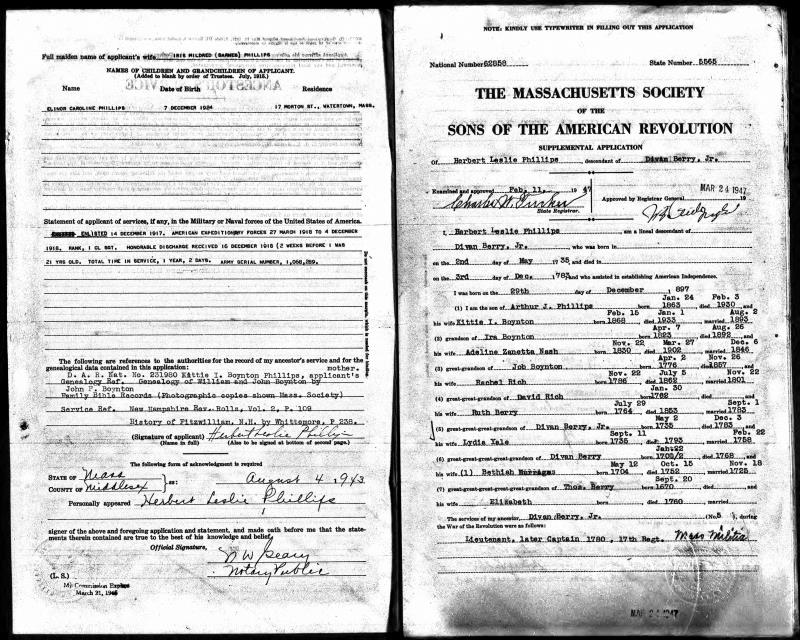 Full maiden name of applicant's wife IRIS MILDRED (BARNES) PHILLIPS
NAMES OF CHILDREN AND GRANDCHILDREN OF APPLICANT.
(Added to blank by order of Trustees. July, 1915.)
Name Date of Birth Residence
ELINOR CAROLINE PHILLIPS 7 DECEMBER 1924 17 MORTON ST., WATERTOWN, MASS.
Statement of applicant of services, if any, in the Military or Naval forces of the United States of America.
ENLISTED 14 DECEMBER 1917. AMERICAN EXPEDITIONARY FORCES 27 MARCH 1918 TO 4 DECEMBER
1918. RANK, 1 CL SGT. HONORABLE DISCHARGE RECEIVED 16 DECEMBER 1918 (2 WEEKS BEFORE I WAS
21 YRS OLD. TOTAL TIME IN SERVICE, 1 YEAR, 2 DAYS. ARMY SERIAL NUMBER, 1,058,259.
The following are references to the authorities for the record of my ancestor's service and for the
genealogical data contained in this application: mother.
D. A. R. Nat. No. 231980 Kittie I. Boynton Phillips, applicant's
Genealogy Ref. Genealogy of William and John Boynton by
John F. Boynton
Family Bible Records (Photographic copies shown Mass. Society)
Service Ref. New Hampshire Rev. Rolls, Vol. 2, P. 109
History of Fitzwilliam, N.H. by Whittemore, P 238.
(Signature of applicant) Herbert Leslie Phillips
(Name in full) (Also to be signed at bottom of second page.)
The following form of acknowledgment is required
STATE OF Mass
COUNTY OF Middlesex } ss: August 4, 1943
Personally appeared Herbert Leslie Phillips
signer of the above and foregoing application and statement, and made oath before me that the state-
ments therein contained are true to the best of his knowledge and belief.
Official Signature, N W Geary
Notary Public
(L. S.)
My Commission Expires
March 21, 1946
NOTE: KINDLY USE TYPEWRITER IN FILLING OUT THIS APPLICATION
National Number 62858 State Number 5565
THE MASSACHUSETTS SOCIETY
OF THE
SONS OF THE AMERICAN REVOLUTION
SUPPLEMENTAL APPLICATION
Of Herbert Leslie Phillips descendant of Divan Berry, Jr.
Examined and approved Feb. 11, 1947 MAR 24 1947
State Registrar. Approved by Registrar General 19
I, Herbert Leslie Phillips am a lineal descendant of
Divan Berry, Jr. who was born in
on the 2nd day of May 1735 and died in
on the 3rd day of Dec. 1783 and who assisted in establishing American Independence.
I was born on the 29th day of December, 1897
Jan. 24 Feb. 3
(1) I am the son of Arthur J. Phillips born 1863 died 1930 and
Feb. 15 Jan. 1 Aug. 2
his wife Kittie I. Boynton born 1868 died 1933 married 1893
Apr. 7 Aug. 26
(2) grandson of Ira Boynton born 1823 died 1892 and
Nov. 22 Mar. 27 Dec. 6
his wife Adeline Zanetta Nash born 1830 died 1902 married 1846
Apr. 2 Nov. 26
(3) great-grandson of Job Boynton born 1776 died 1857 and
Nov. 22 July 5 Nov. 22
his wife Rachel Rich born 1786 died 1862 married 1801
Jan. 30
(4) great-great-grandson of David Rich born 1762 died and
July 29 Sept. 1
his wife Ruth Berry born 1764 died 1853 married 1783
May 2 Dec. 3
(5) great-great-great-grandson of Divan Berry, Jr. born 1735 died 1783 and
Sept. 11 Feb. 22
his wife Lydia Yale born 1735 died 1793 married 1758
Jan. 22
(6) great-great-great-great-grandson of Divan Berry born 1701/2 died 1768 and
May 12 Oct. 15 Nov. 18
his wife (1) Bethiah born 1704 died 1752 married 1725
Sept. 20
(7) great-great-great-great-great-grandson of Thos. Berry born 1670 died and
his wife Elizabeth born died 1760 married
The services of my ancestor, Divan Berry, Jr. (No. 5), during
the War of the Revolution were as follows:
Lieutenant, later Captain 1780, 17th Regt. Mass Militia
MAR 24 1947